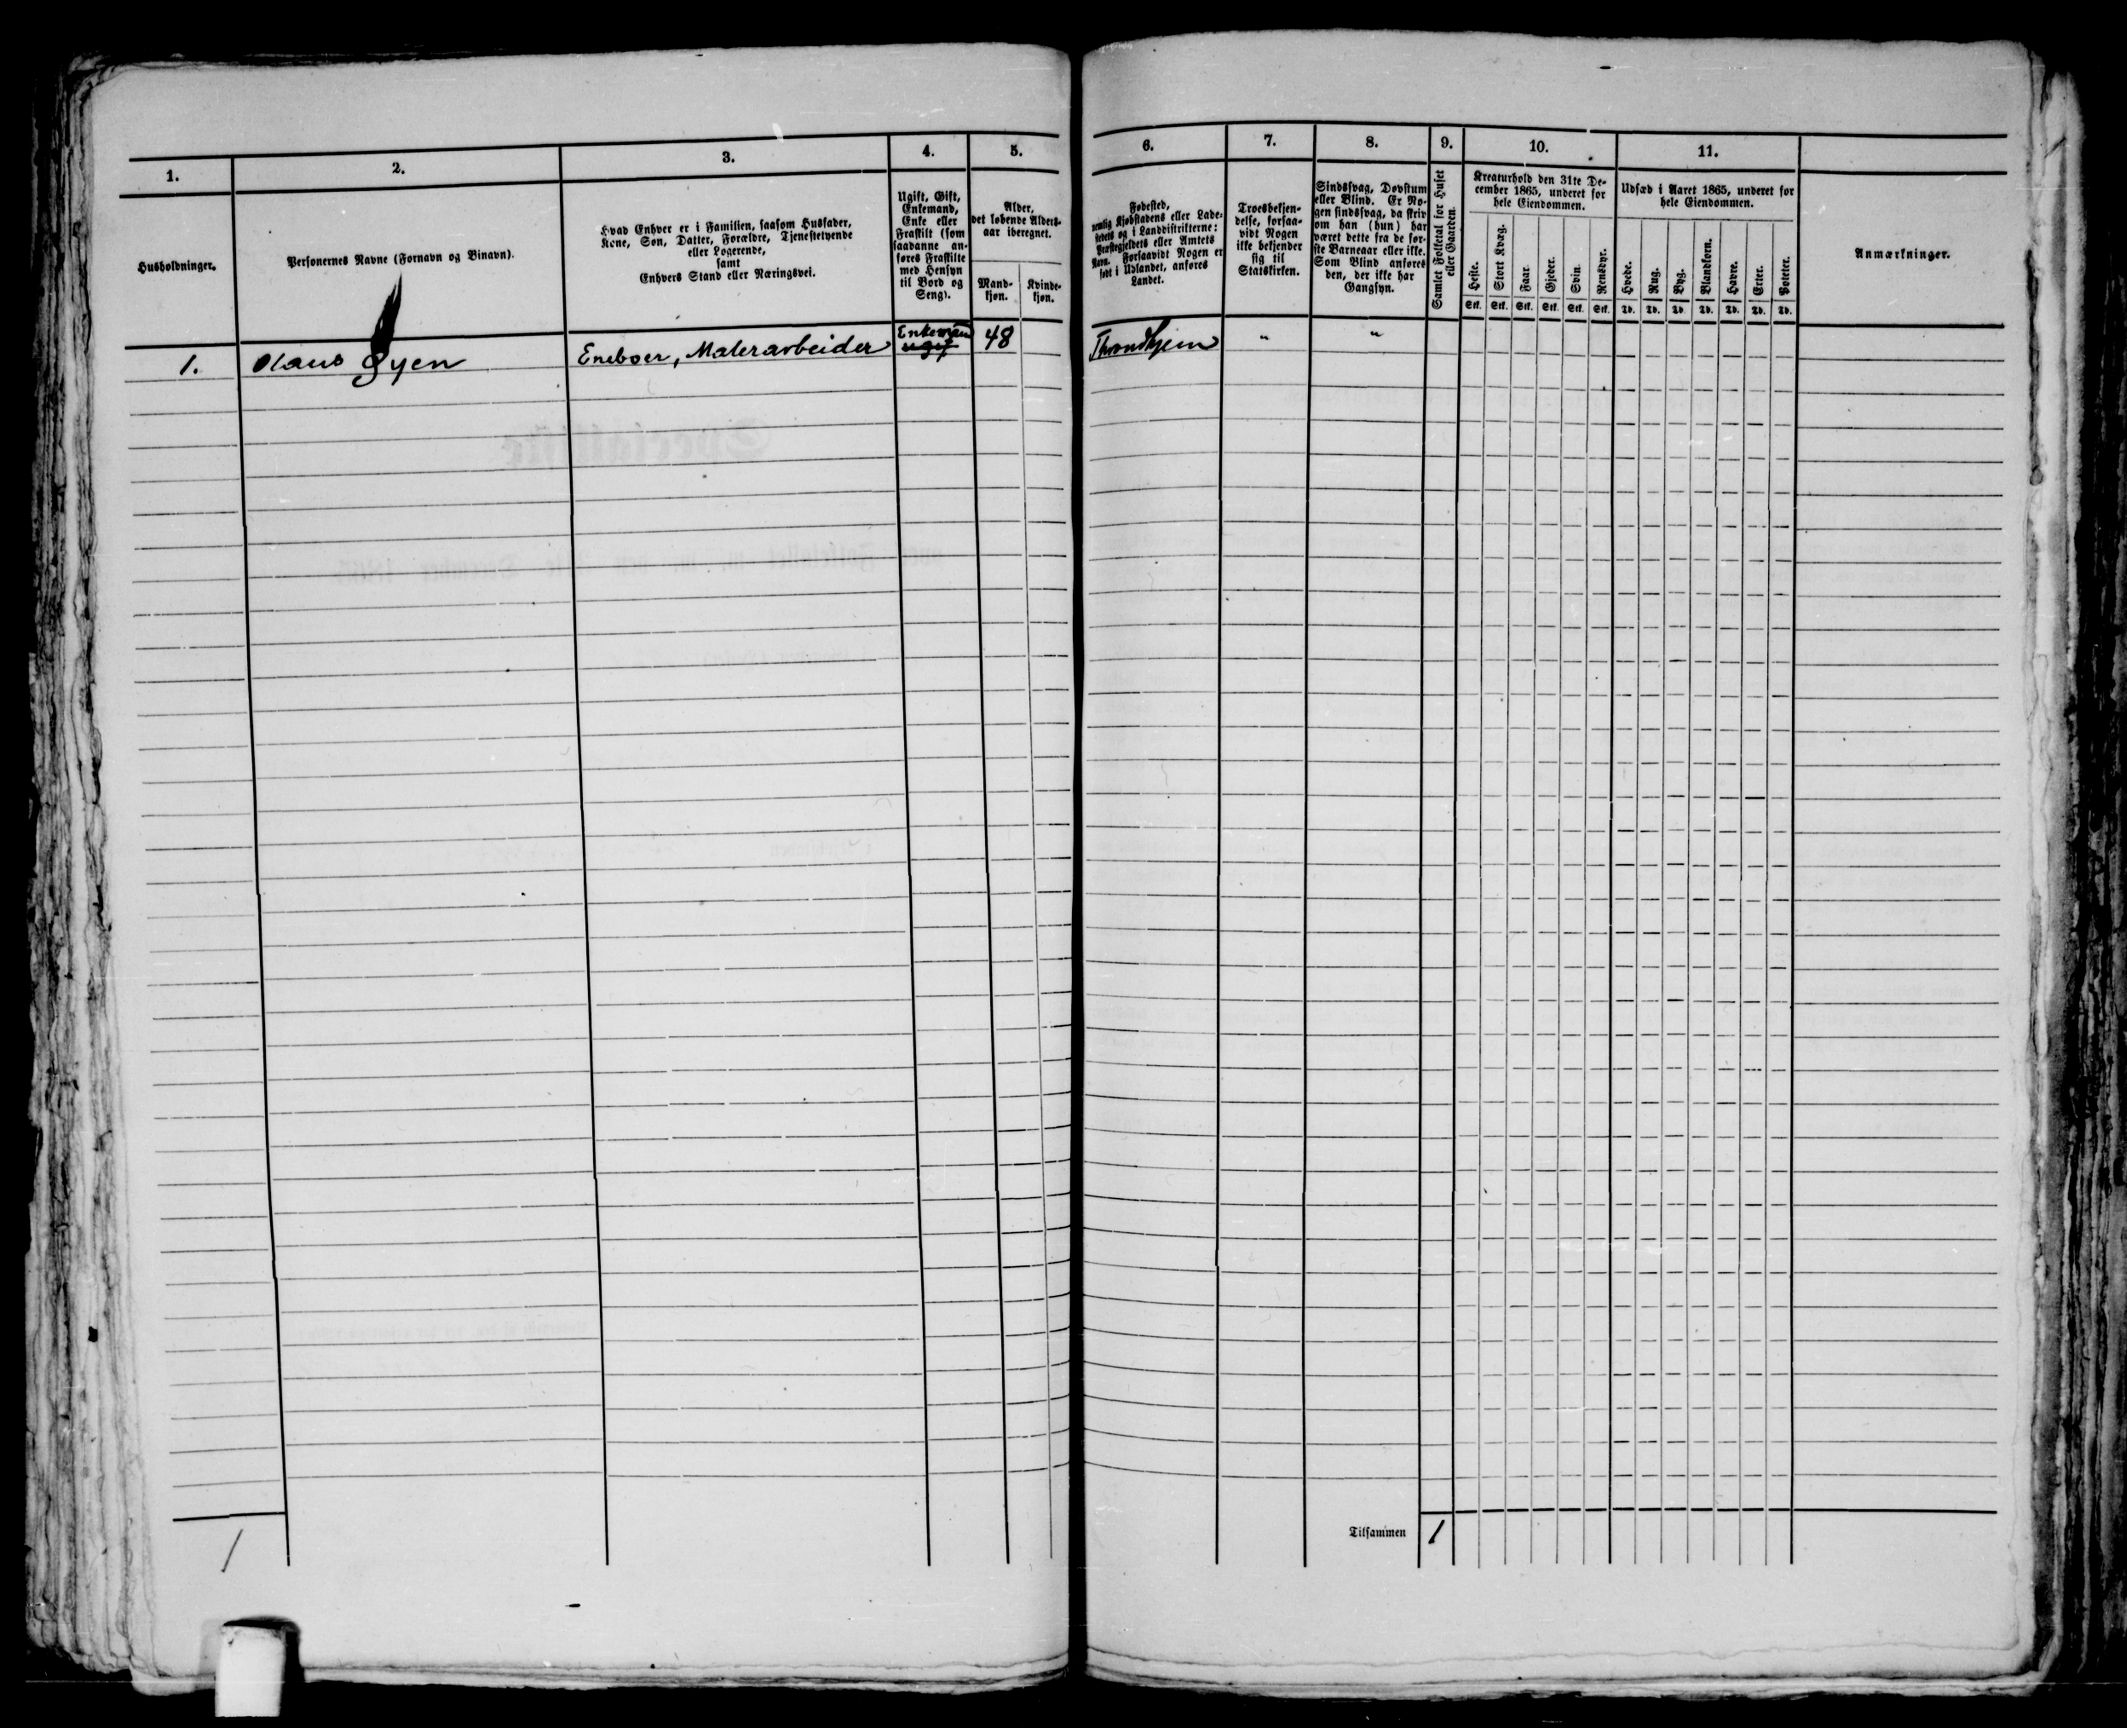 1.
2.
3.
4.
5.
6.
7.
8.
9.
10.
11.
Husholdninger.
Personernes Navne (Fornavn og Binavn).
Hvad Enhver er i Familien, saasom Husfader,
Kone, Søn, Datter, Forældre, Tjenestetyende
eller Logerende,
samt
Enhvers Stand eller Næringsvei.
Ugift, Gift,
Enkemand,
Enke eller
Fraskilt (som
saadanne an-
føres Fraskilte
med Hensyn
til Bord og
Seng).
Alder,
det løbende Alders-
aar iberegnet.
Mand-
kjøn.
Kvinde-
kjøn.
Fødested,
nemlig Kjøbstadens eller Lade-
stedets og i Landdistrikterne:
Præstegjeldets eller Amtets
Navn. Forsaavidt Nogen er
født i Udlandet, anføres
Landet.
Troesbekjen-
delse, forsaa-
vidt Nogen
ikke bekjender
sig til
Statskirken.
Sindssvag, Døvstum
eller Blind. Er No-
gen sindssvag, da skriv
om han (hun) har
været dette fra de før-
ste Barneaar eller ikke.
Som Blind anføres
den, der ikke har
Gangsyn.
Samlet Folketal for Huset
eller Gaarden.
Kreaturhold den 31te De-
cember 1865, underet for
hele Eiendommen.
Heste.
Stort Kvæg.
Faar.
Gjeder.
Svin.
Rensdyr.
Stk. Stk. Stk. Stk. Stk. Stk.
Udsæd i Aaret 1865, underet for
hele Eiendommen.
Hvede.
Rug.
Byg.
Blandkorn.
Havre.
Erter.
Poteter.
Td. Td. Td. Td. Td. Td. Td.
Anmærkninger.
1. Olaus Øyen Eneboer, Malerarbeider Enkemand 48 Throndhjem " "
ugift
1
Tilsammen 1